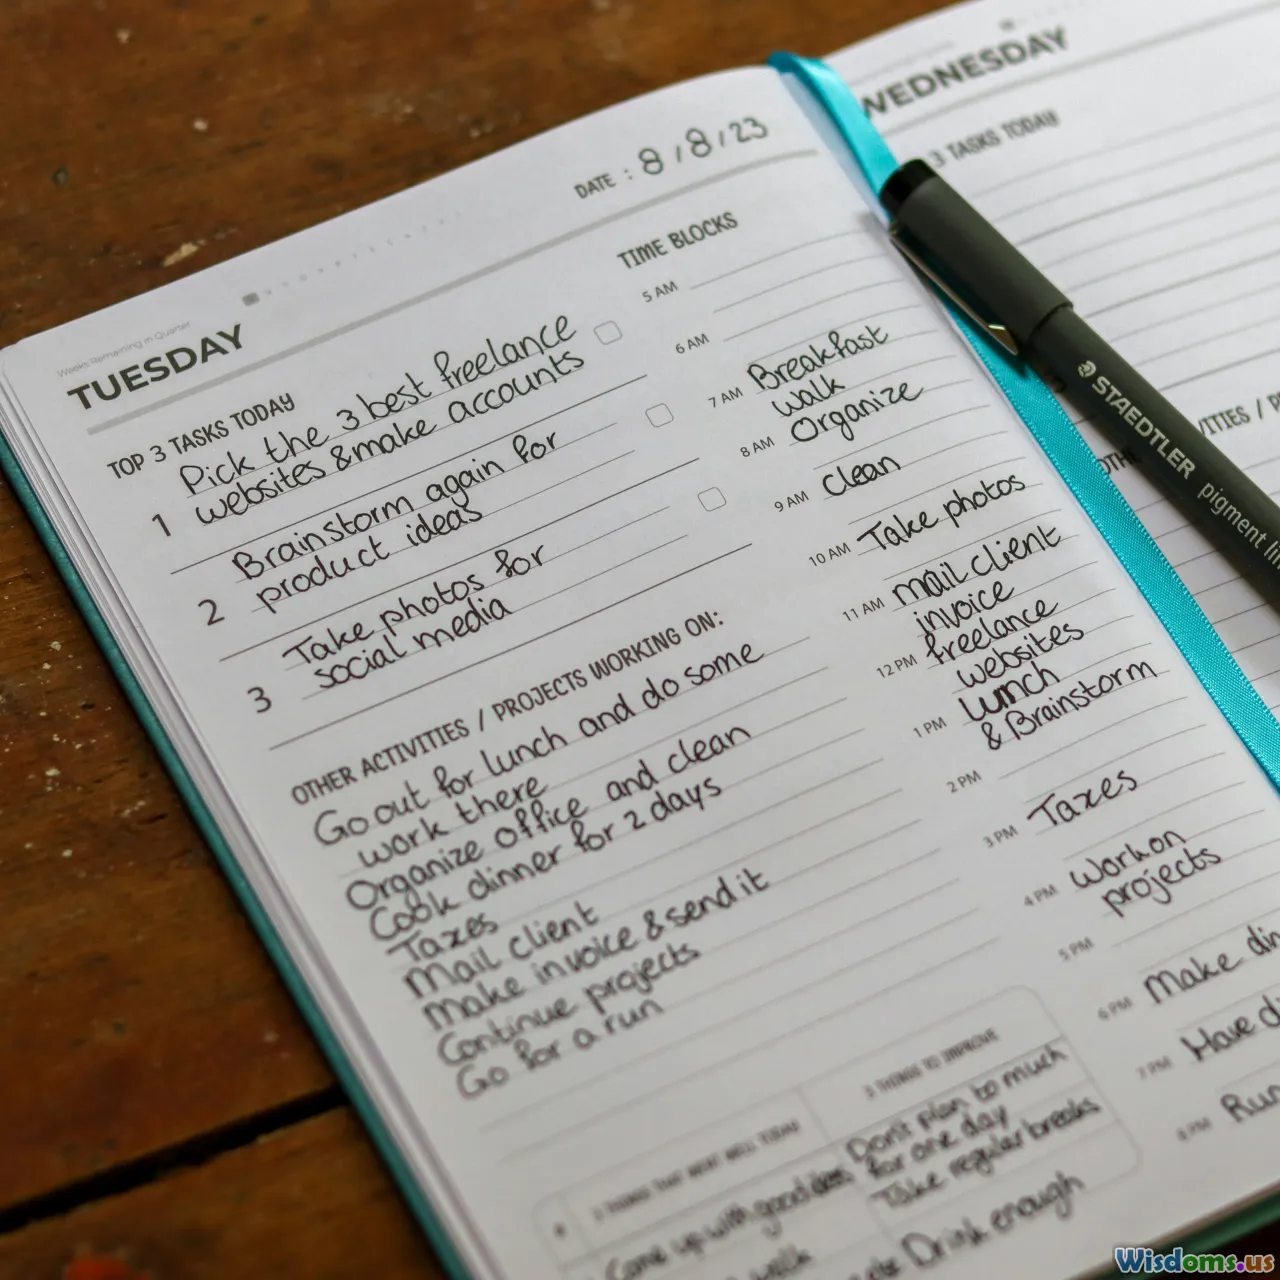 Weeks Remaining in Quarter
TUESDAY
DATE : 8/8/23
TOP 3 TASKS TODAY
1 Pick the 3 best freelance
websites & make accounts
2 Brainstorm again for
product ideas
3 Take photos for
social media
OTHER ACTIVITIES / PROJECTS WORKING ON:
Go out for lunch and do some
work there
Organize office and clean
Cook dinner for 2 days
Taxes
Mail client
Make invoice & send it
Continue projects
Go for a run
TIME BLOCKS
5 AM
6 AM
7 AM Breakfast
walk
8 AM Organize
9 AM Clean
10 AM Take photos
11 AM mail client
invoice
12 PM freelance
websites
1 PM Lunch
& Brainstorm
2 PM
3 PM Taxes
4 PM Work on
projects
5 PM
6 PM Make din
7 PM Have d
8 PM Run
3 THINGS THAT WENT WELL TODAY
Come up with good ideas
walk
3 THINGS TO IMPROVE
Don't plan to much
for one day
Take regular breaks
Drink enough
WEDNESDAY
3 TASKS TODAY
OTHE
VITIES / PR
STAEDTLER pigment lin
Wisdoms.us